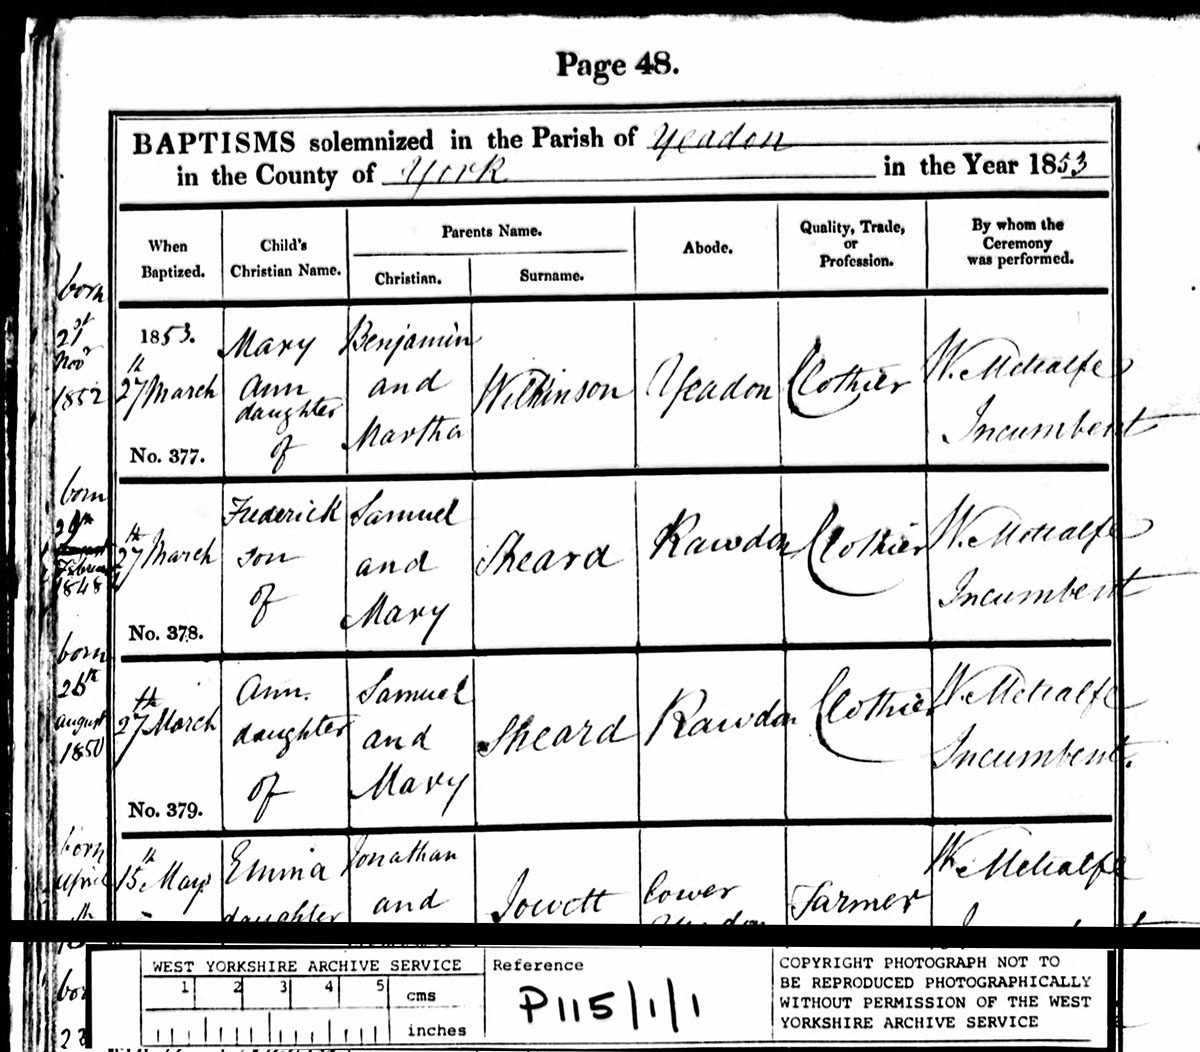 Page 48.
BAPTISMS solemnized in the Parish of Yeadon
in the County of York in the Year 1853
When Baptized.
Child's Christian Name.
Parents Name.
Christian.
Surname.
Abode.
Quality, Trade, or Profession.
By whom the Ceremony was performed.
born
21st
Novr
1852
1853.
27th March
No. 377.
Mary
Ann
daughter
of
Benjamin
and
Martha
Wilkinson
Yeadon
Clothier
W. Metcalfe
Incumbent
born
29th
February
1848
27th March
No. 378.
Frederick
son
of
Samuel
and
Mary
Sheard
Rawdon
Clothier
W. Metcalfe
Incumbent
born
26th
August
1850
27th March
No. 379.
Ann.
daughter
of
Samuel
and
Mary
Sheard
Rawdon
Clothier
W. Metcalfe
Incumbent.
born
April
15th May
Emma
daughter
Jonathan
and
Jowett
Lower
Yeadon
Farmer
W. Metcalfe
WEST YORKSHIRE ARCHIVE SERVICE
1 2 3 4 5
cms
inches
Reference
P115/1/1
COPYRIGHT PHOTOGRAPH NOT TO
BE REPRODUCED PHOTOGRAPHICALLY
WITHOUT PERMISSION OF THE WEST
YORKSHIRE ARCHIVE SERVICE